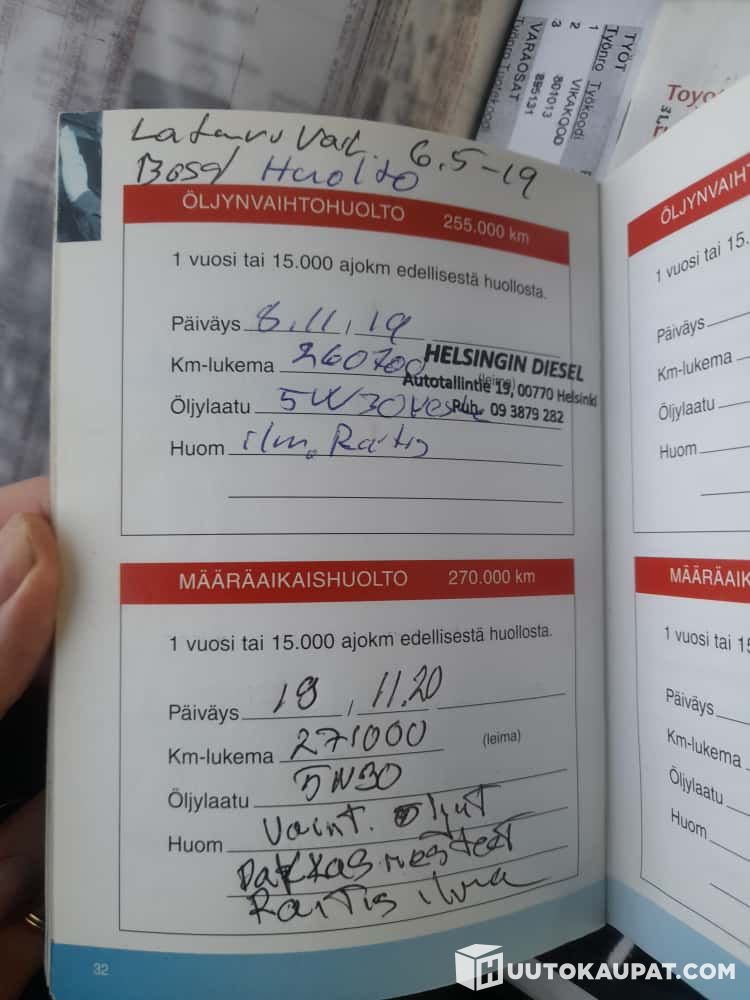 TYÖT
Työnro Työkoodi
1
2 VIKAKOOD
3 801013
VARAOSAT
895131
Toyo
Laturi Vaih. 6.5-19
Bosch Huolto
ÖLJYNVAIHTOHUOLTO 255.000 km
1 vuosi tai 15.000 ajokm edellisestä huollosta.
Päiväys 8.11.19
Km-lukema 260700 (leima)
HELSINGIN DIESEL
Autotallintie 19, 00770 Helsinki
Puh. 09 3879 282
Öljylaatu 5W30
Huom ilm. Raitis
MÄÄRÄAIKAISHUOLTO 270.000 km
1 vuosi tai 15.000 ajokm edellisestä huollosta.
Päiväys 19.11.20
Km-lukema 271000 (leima)
Öljylaatu 5W30
Huom Vaiht. öljyt
Pakkasnesteet
Raitis ilma
32
ÖLJYNVAIHT
1 vuosi tai 15.
Päiväys
Km-lukema
Öljylaatu
Huom
MÄÄRÄAIK
1 vuosi tai 15
Päiväys
Km-lukema
Öljylaatu
Huom
HUUTOKAUPAT.COM